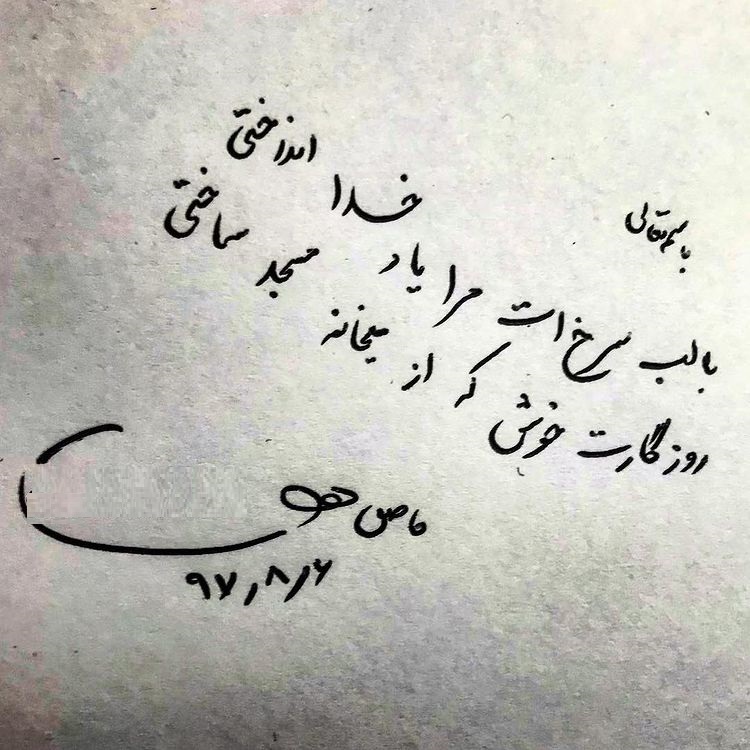 باسمه تعالی
با لب سرخ ات مرا یاد خدا انداختی
روزگارت خوش که از میخانه مسجد ساختی
فاضل
۹۷٫۸٫۶